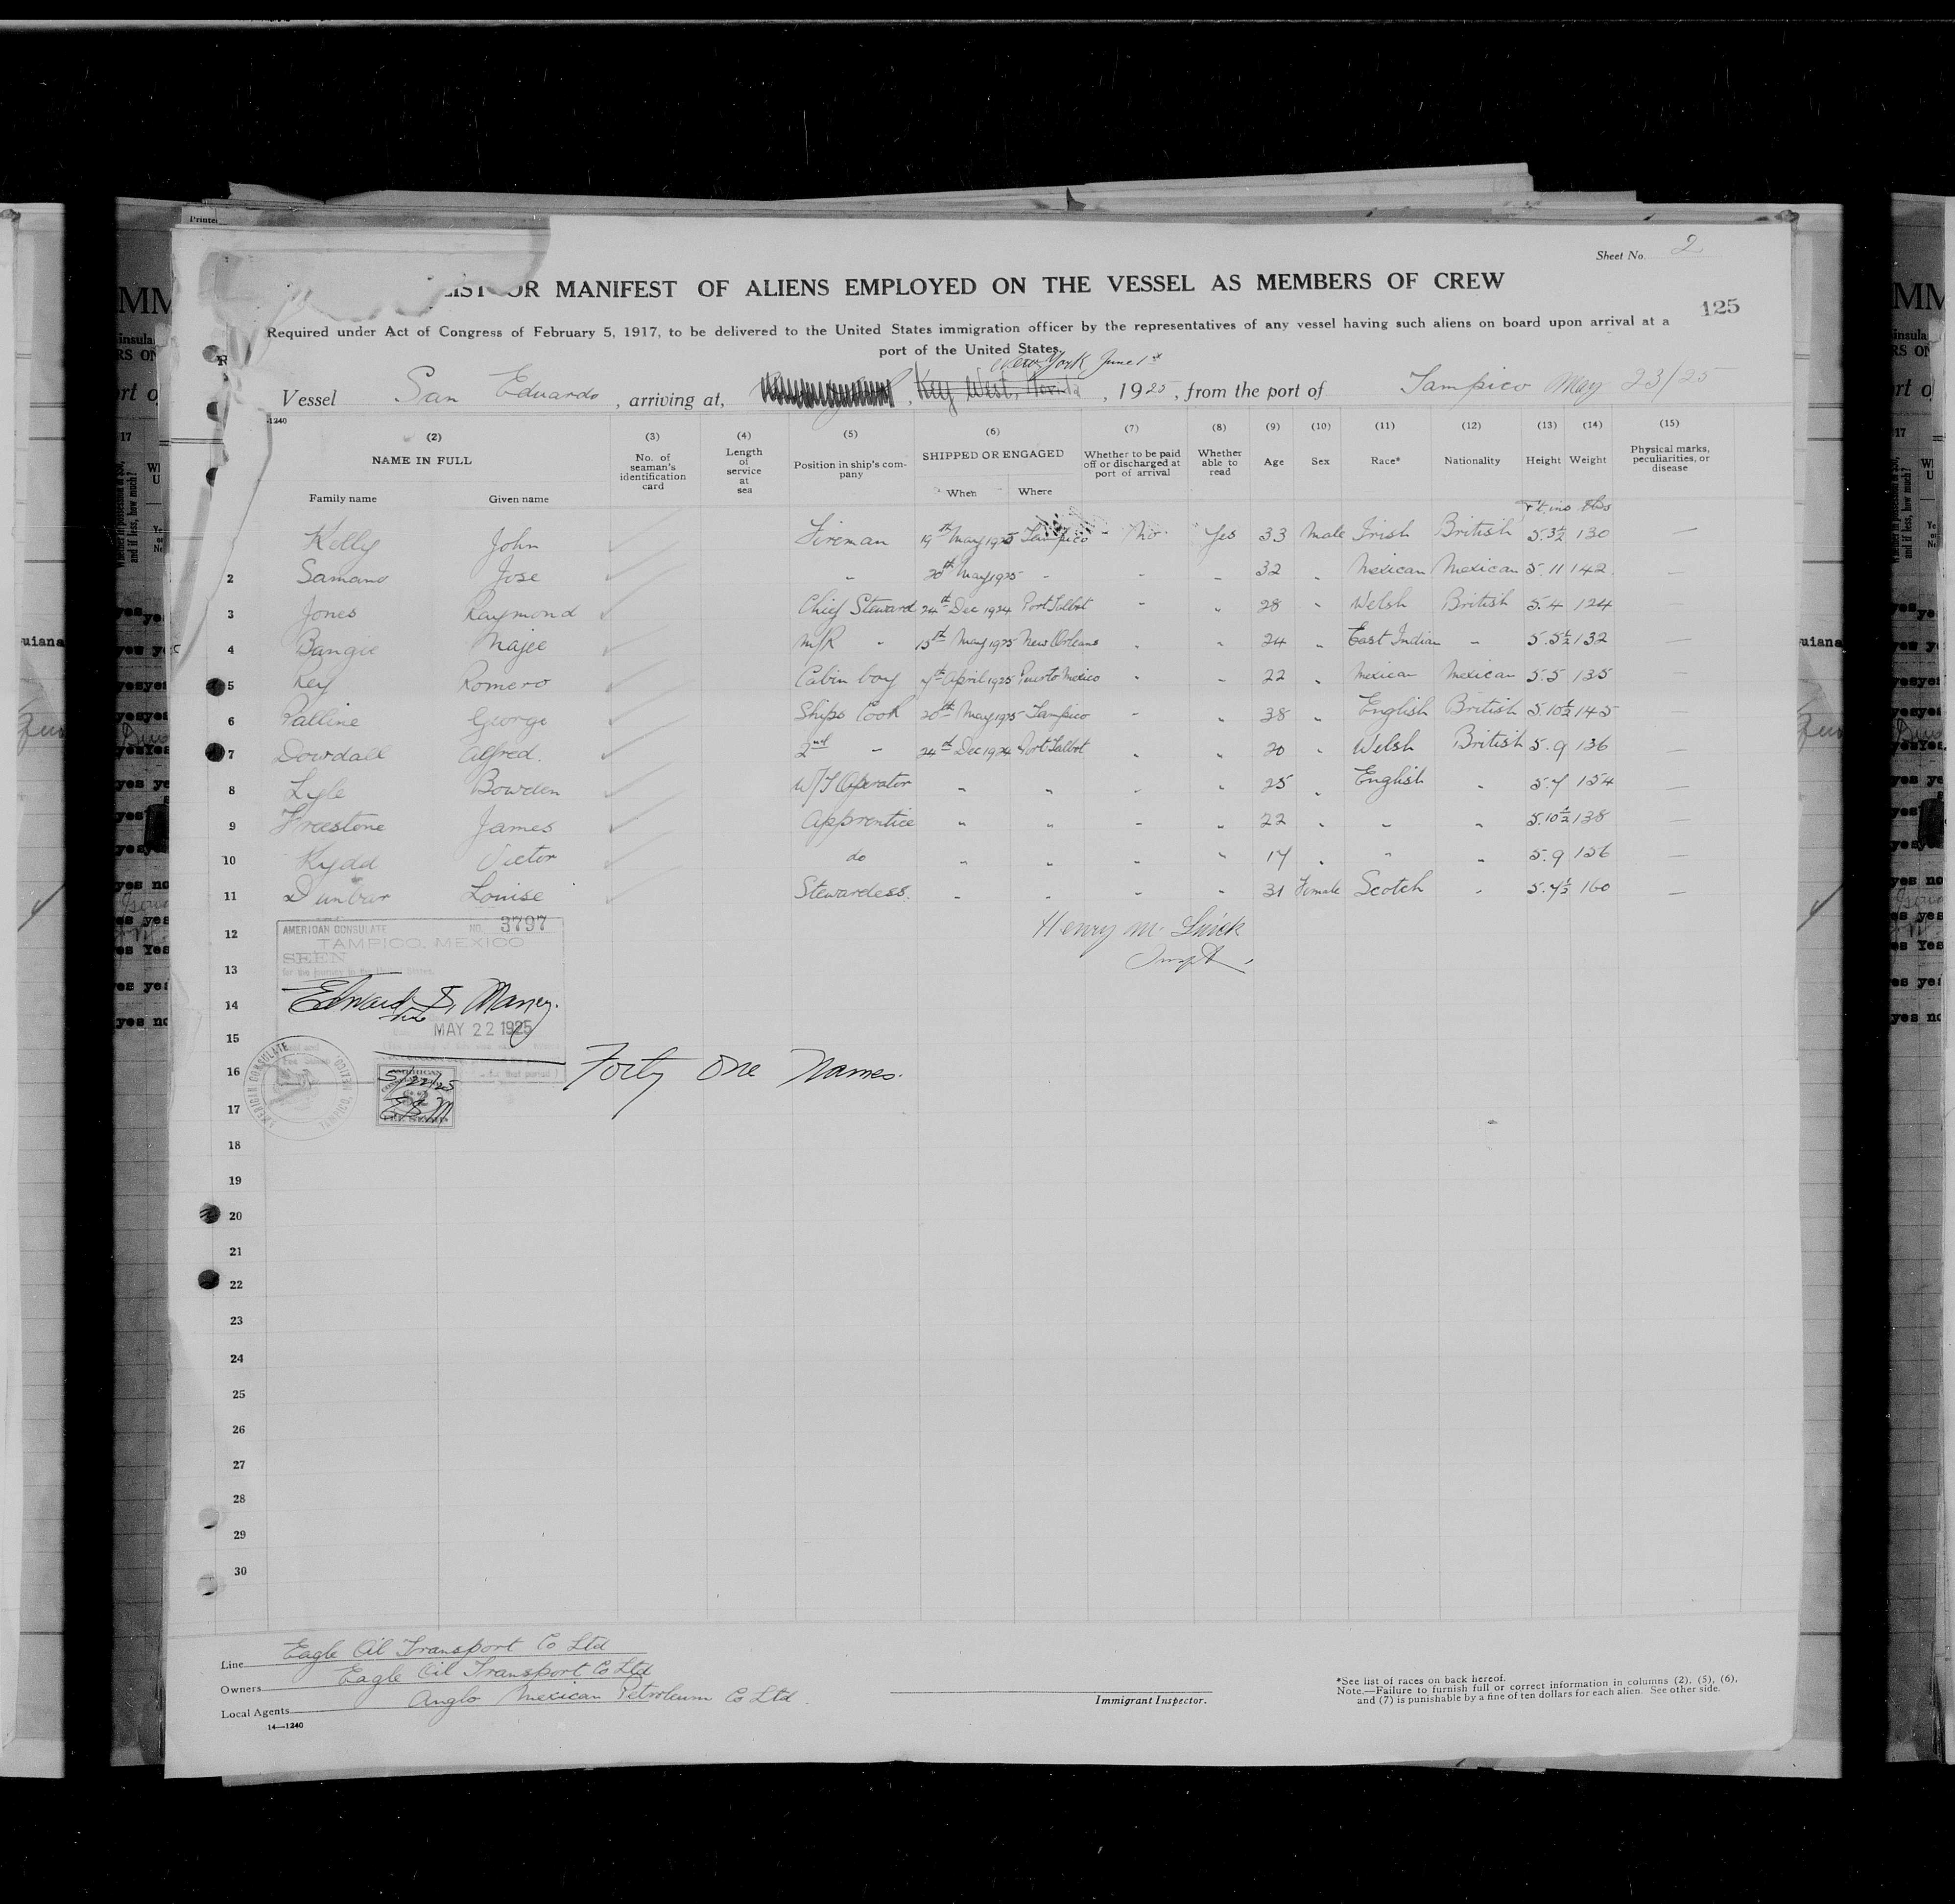 Sheet No. 2
LIST OR MANIFEST OF ALIENS EMPLOYED ON THE VESSEL AS MEMBERS OF CREW
125
Required under Act of Congress of February 5, 1917, to be delivered to the United States immigration officer by the representatives of any vessel having such aliens on board upon arrival at a
port of the United States.
New York June 1st
Vessel San Eduardo, arriving at, Key West, Florida, 1925, from the port of Tampico May 23/25
-1240
(2) (3) (4) (5) (6) (7) (8) (9) (10) (11) (12) (13) (14) (15)
NAME IN FULL No. of seaman's identification card Length of service at sea Position in ship's company SHIPPED OR ENGAGED Whether to be paid off or discharged at port of arrival Whether able to read Age Sex Race* Nationality Height Weight Physical marks, peculiarities, or disease
Family name Given name When Where
Ft. ins lbs
Kelly John Fireman 19th May 1925 Tampico No. Yes 33 Male Irish British 5.3½ 130 —
2 Samano Jose " 20th May 1925 " " " 32 " Mexican Mexican 5.11 142 —
3 Jones Raymond Chief Steward 24th Dec 1924 Port Talbot " " 28 " Welsh British 5.4 124 —
4 Bangie Majee M/R " 15th May 1925 New Orleans " " 24 " East Indian " 5.5½ 132 —
5 Key Romero Cabin boy 7th April 1925 Puerto Mexico " " 22 " Mexican Mexican 5.5 135 —
6 George Ships Cook 20th May 1925 Tampico " " 38 " English British 5.10½ 145 —
7 Dowdall Alfred. 2nd " 24th Dec 1924 Port Talbot " " 20 " Welsh British 5.9 136 —
8 Lyle Bowden W/T Operator " " " " 25 " English " 5.7 154 —
9 Freestone James Apprentice " " " " 22 " " " 5.10½ 138 —
10 Kydd Victor do " " " " 17 " " " 5.9 156 —
11 Dunbar Louise Stewardess. " " " " 31 Female Scotch " 5.7½ 160 —
12
AMERICAN CONSULATE NO. 3797
TAMPICO, MEXICO
SEEN
for the journey to the United States.
Henry M.
Inspt
13
14
Edward S. Maney.
MAY 22 1925
15
16
Forty One Names.
AMERICAN CONSULATE
TAMPICO, MEXICO.
5/22/25
ESM
17
18
19
20
21
22
23
24
25
26
27
28
29
30
Line Eagle Oil Transport Co Ltd
Owners Eagle Oil Transport Co Ltd
Local Agents Anglo Mexican Petroleum Co Ltd.
14—1240
Immigrant Inspector.
*See list of races on back hereof.
Note.—Failure to furnish full or correct information in columns (2), (5), (6),
and (7) is punishable by a fine of ten dollars for each alien. See other side.